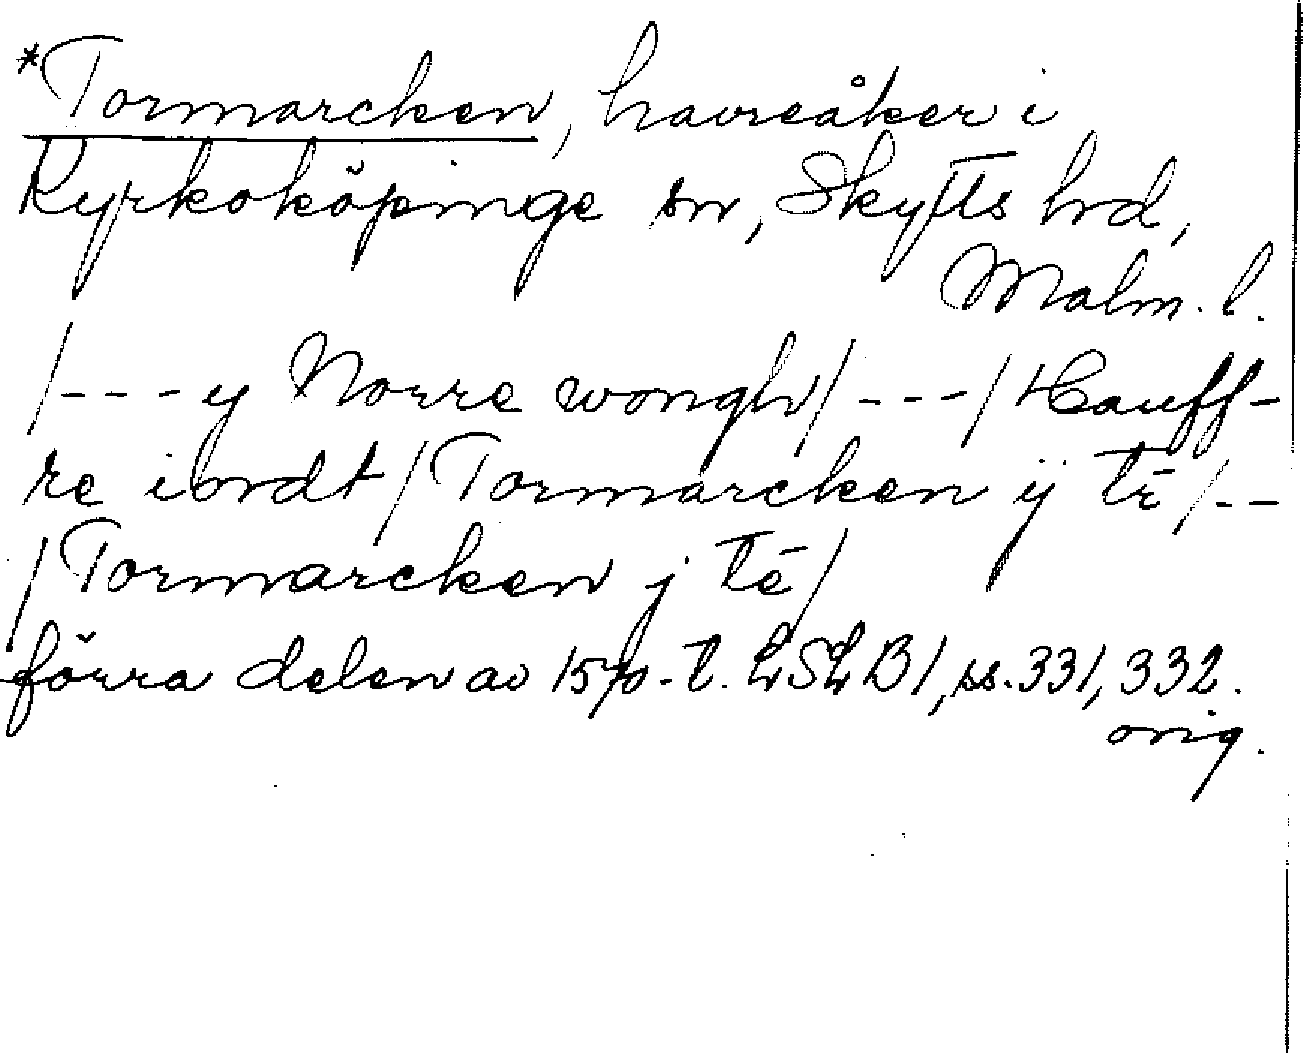 *Tormarcken, havreåker i
Kyrkoköpinge sn, Skytts hd,
Malm. l.
/---y Norre wongh/---/Hauff-
re iordt/Tormarcken ij tē/--
/Tormarcken j tē/
förra delen av 1570-t. LSLB1, ss. 331, 332.
orig.